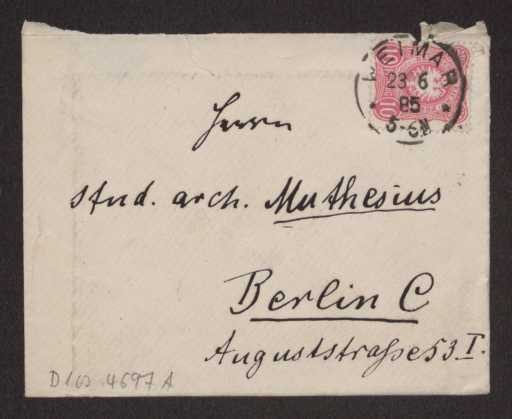 WEIMAR
23 6
85
5-6N
10
Herrn
stud. arch. Muthesius
Berlin C
Auguststraße 53 I.
D 102-4697 A